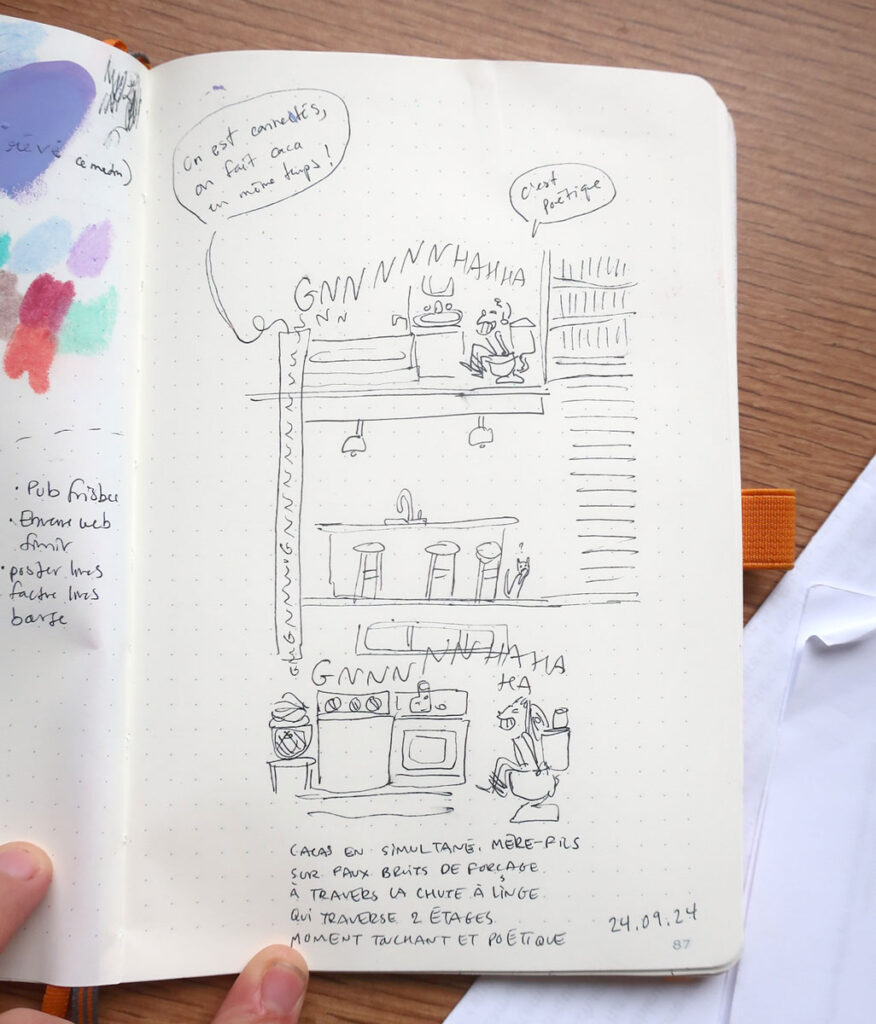 rêvé
ce matin)
• Pub frisbee
• poster livres
on est connectés,
on fait caca
en même temps !
c'est
poétique
GNNNNNNHAHHA
NN
GNNNNNHAHA
HA
CACAS EN SIMULTANÉ, MÈRE-FILS
SUR FAUX BRUITS DE FORÇAGE
À TRAVERS LA CHUTE À LINGE
QUI TRAVERSE 2 ÉTAGES
MOMENT TOUCHANT ET POÉTIQUE
24.09.24
87